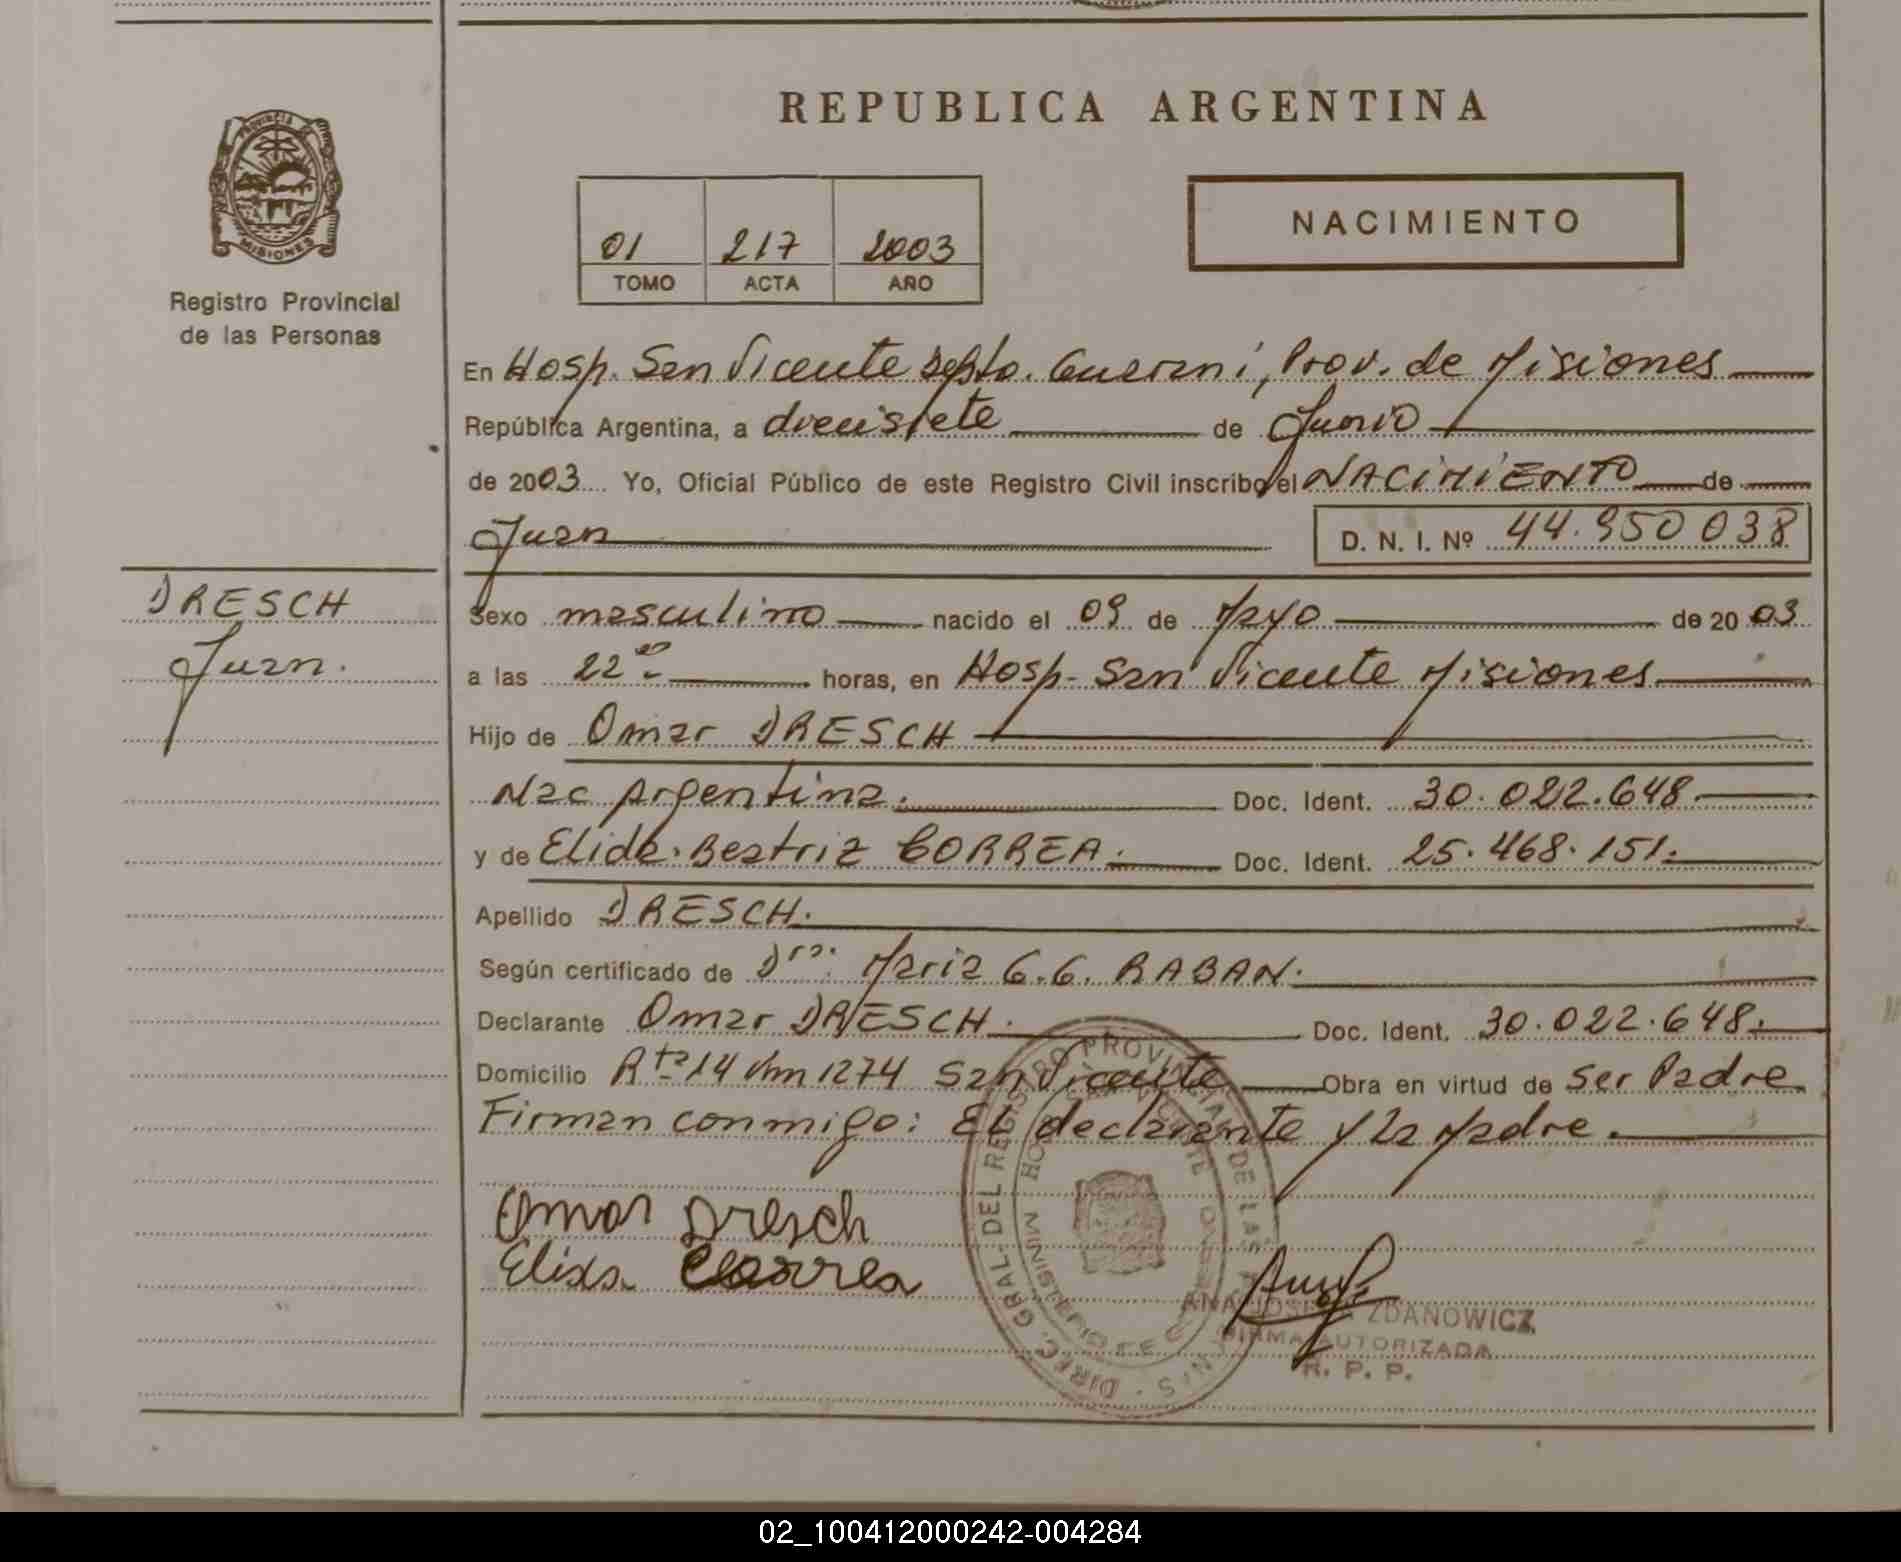 REPUBLICA ARGENTINA
PROVINCIA DE
MISIONES
Registro Provincial
de las Personas
01 217 2003
TOMO ACTA AÑO
NACIMIENTO
En Hosp. San Vicente Depto. Guarani, Prov. de Misiones
República Argentina, a diecisiete de Junio
de 2003 Yo, Oficial Público de este Registro Civil inscribo el NACIMIENTO de
Juan D. N. I. Nº 44.950038
DRESCH
Juan.
Sexo masculino nacido el 09 de Mayo de 2003
a las 22 horas, en Hosp. San Vicente Misiones
Hijo de Omar DRESCH
Nac Argentina. Doc. Ident. 30.022.648.
y de Elida Beatriz CORREA. Doc. Ident. 25.468.151.
Apellido DRESCH.
Según certificado de Dra. Maria G.G. RABAN.
Declarante Omar DRESCH. Doc. Ident. 30.022.648.
Domicilio Rta 14 Km 1274 San Vicente Obra en virtud de ser Padre
Firman conmigo: El declarante y la Madre.
Omar Dresch
Elida Correa
DIREC. GRAL. DEL REGISTRO PROVINCIAL DE LAS
ZDANOWICZ
FIRMA AUTORIZADA
R. P. P.
02_100412000242-004284